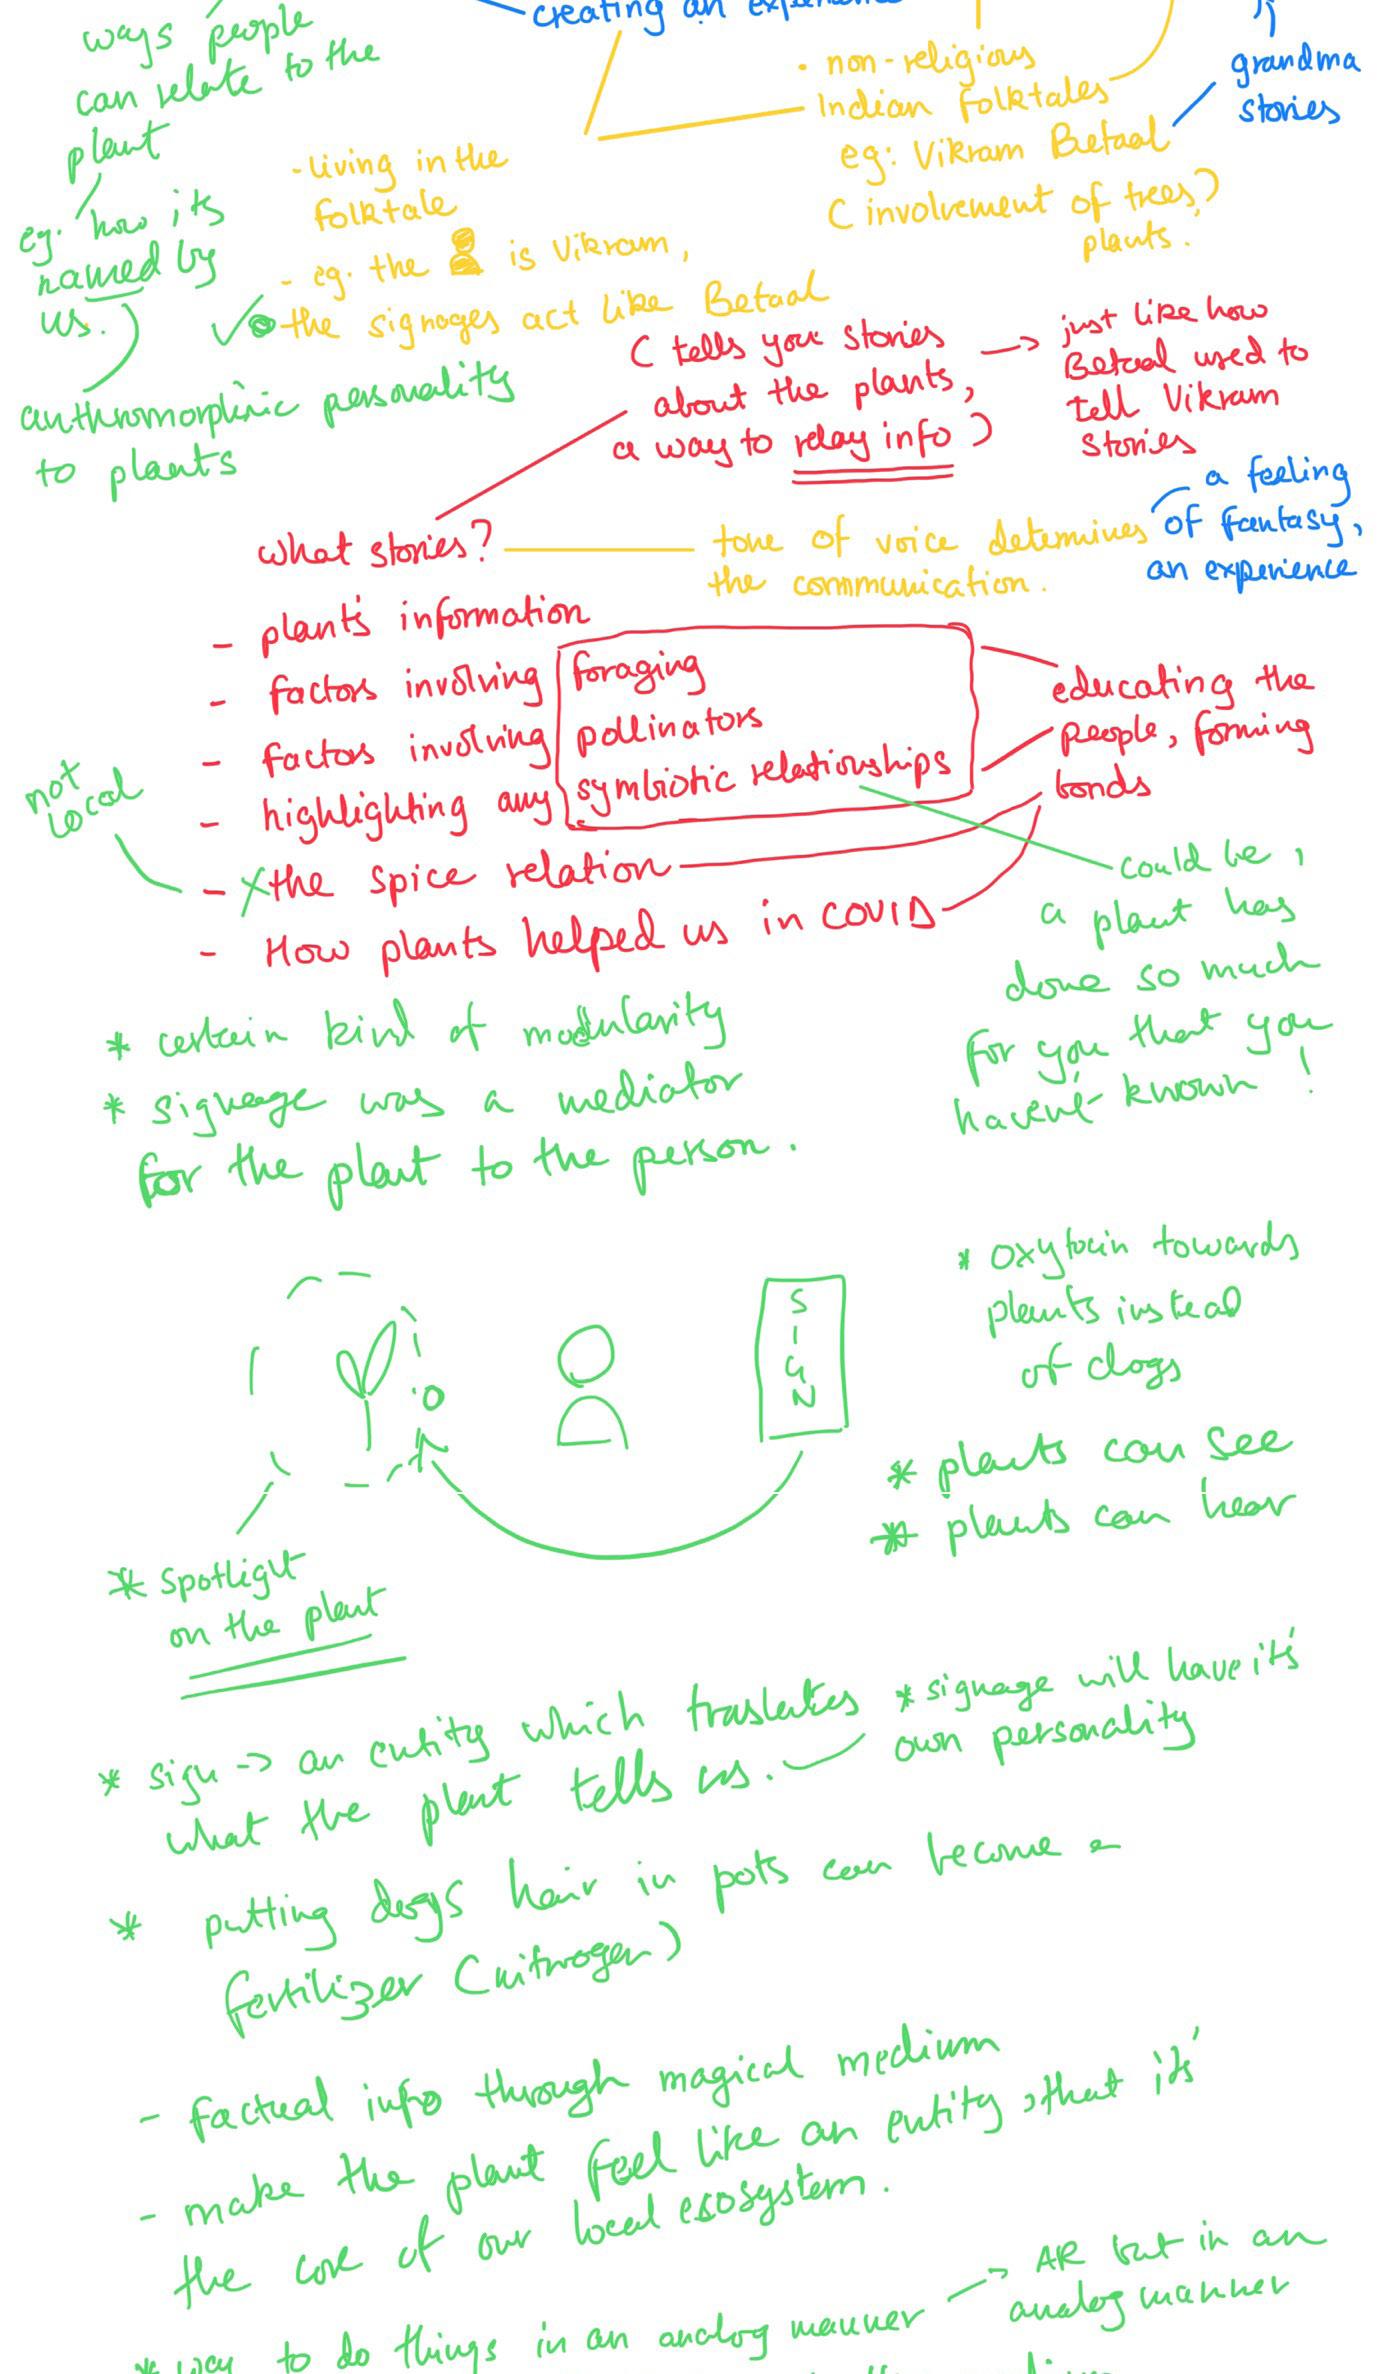 creating an experience
ways people
can relate to the
plant
eg. how its
named by
us.
anthromorphic personality
to plants
• non-religious
Indian folktales
eg: Vikram Betaal
( involvement of trees, )
plants.
grandma
stories
- living in the
folktale
- eg. the is Vikram,
the signages act like Betaal
( tells you stories
about the plants,
a way to relay info )
just like how
Betaal used to
tell Vikram
stories
what stories?
tone of voice determines
the communication.
a feeling
of fantasy,
an experience
- plant's information
- factors involving foraging
- factors involving pollinators
- highlighting any symbiotic relationships
- the spice relation
- How plants helped us in COVID
not
local
educating the
people, forming
bonds
could be,
a plant has
done so much
for you that you
haven't known!
* certain kind of modularity
* signeage was a mediator
for the plant to the person.
SIGN
* oxytocin towards
plants instead
of dogs
* plants can see
* plants can hear
* spotlight
on the plant
* sign -> an entity which traslates
what the plant tells us.
* signage will have it's
own personality
* putting dogs hair in pots can become a
fertilizer (nitrogen)
- factual info through magical medium
- make the plant feel like an entity, that it's
the core of our local ecosystem.
* way to do things in an analog manner
AR but in an
analog manner